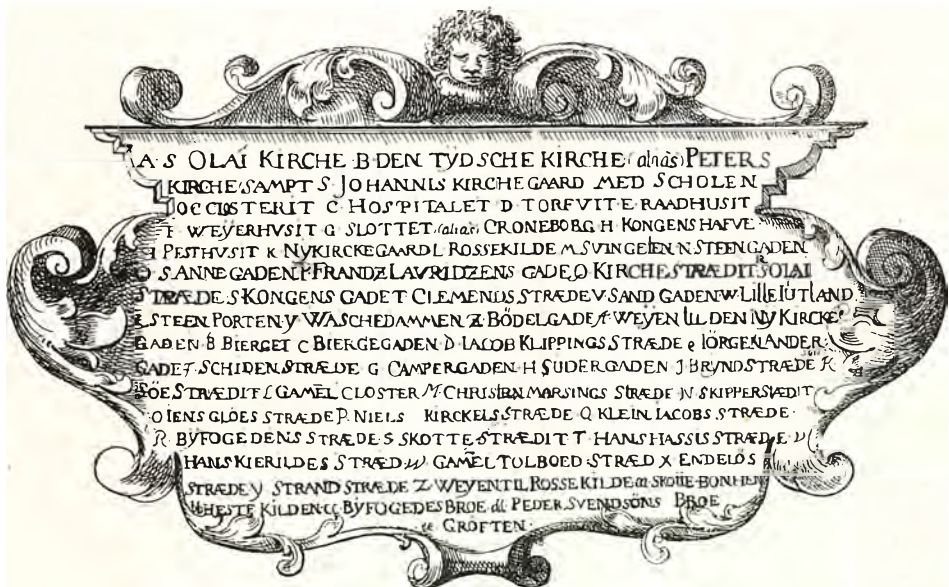 A·S OLAI KIRCHE·B·DEN TYDSCHE KIRCHE (alias) PETERS
KIRCHE SAMPT S·JOHANNIS KIRCHEGAARD MED SCHOLEN
OC CLOSTERIT C·HOSPITALET D·TORFVIT·E·RAADHUSIT
F WEYERHVSIT G SLOTTET (alias) CRONEBORG·H·KONGENS HAFVE
I PESTHUSIT K NYKIRCKEGAARD L ROSSEKILDE M SVINGELEN·N·STEENGADEN
O·S·ANNE GADEN·P·FRANDZ LAVRIDZENS GADE·Q·KIRCHESTRÆDIT S OLAI
STRÆDE·S·KONGENS GADE T CLEMENDS STRÆDE V SAND GADEN·W·LILLE IUTLAND
STEEN PORTEN·Y·WASCHEDAMMEN·Z·BÖDELGADE A·WEYEN TIL DEN NY KIRCKE
GADEN·B BIERGET C BIERGEGADEN·D·IACOB KLIPPINGS STRÆDE e IÖRGEN LANDER
GADE F·SCHIDEN STRÆDE·G CAMPERGADEN·H SUDERGADEN J BRYND STRÆDE K
SÖE STRÆDIT L GAMEL CLOSTER M·CHRISTERN MARSINGS STRÆDE·N·SKIPPERSTÆDIT
O IENS GLOES STRÆDE P·NIELS KIRCKELS STRÆDE Q KLEIN IACOBS STRÆDE·
R·BYFOGEDENS STRÆDE·S SKOTTE STRÆDIT T HANS HASSIS STRÆDE V
HANS KIERILDES STRÆD·W·GAMEL TOLBOED·STRÆD X ENDELÖS
STRÆDE Y STRAND STRÆDE Z·WEYEN TIL ROSSE KILDE aa SKOTTE-BONHEN
HESTE KILDEN·cc BYFOGEDES BROE·dd PEDER SVENDSÖNS BROE
ee GRÖFTEN·